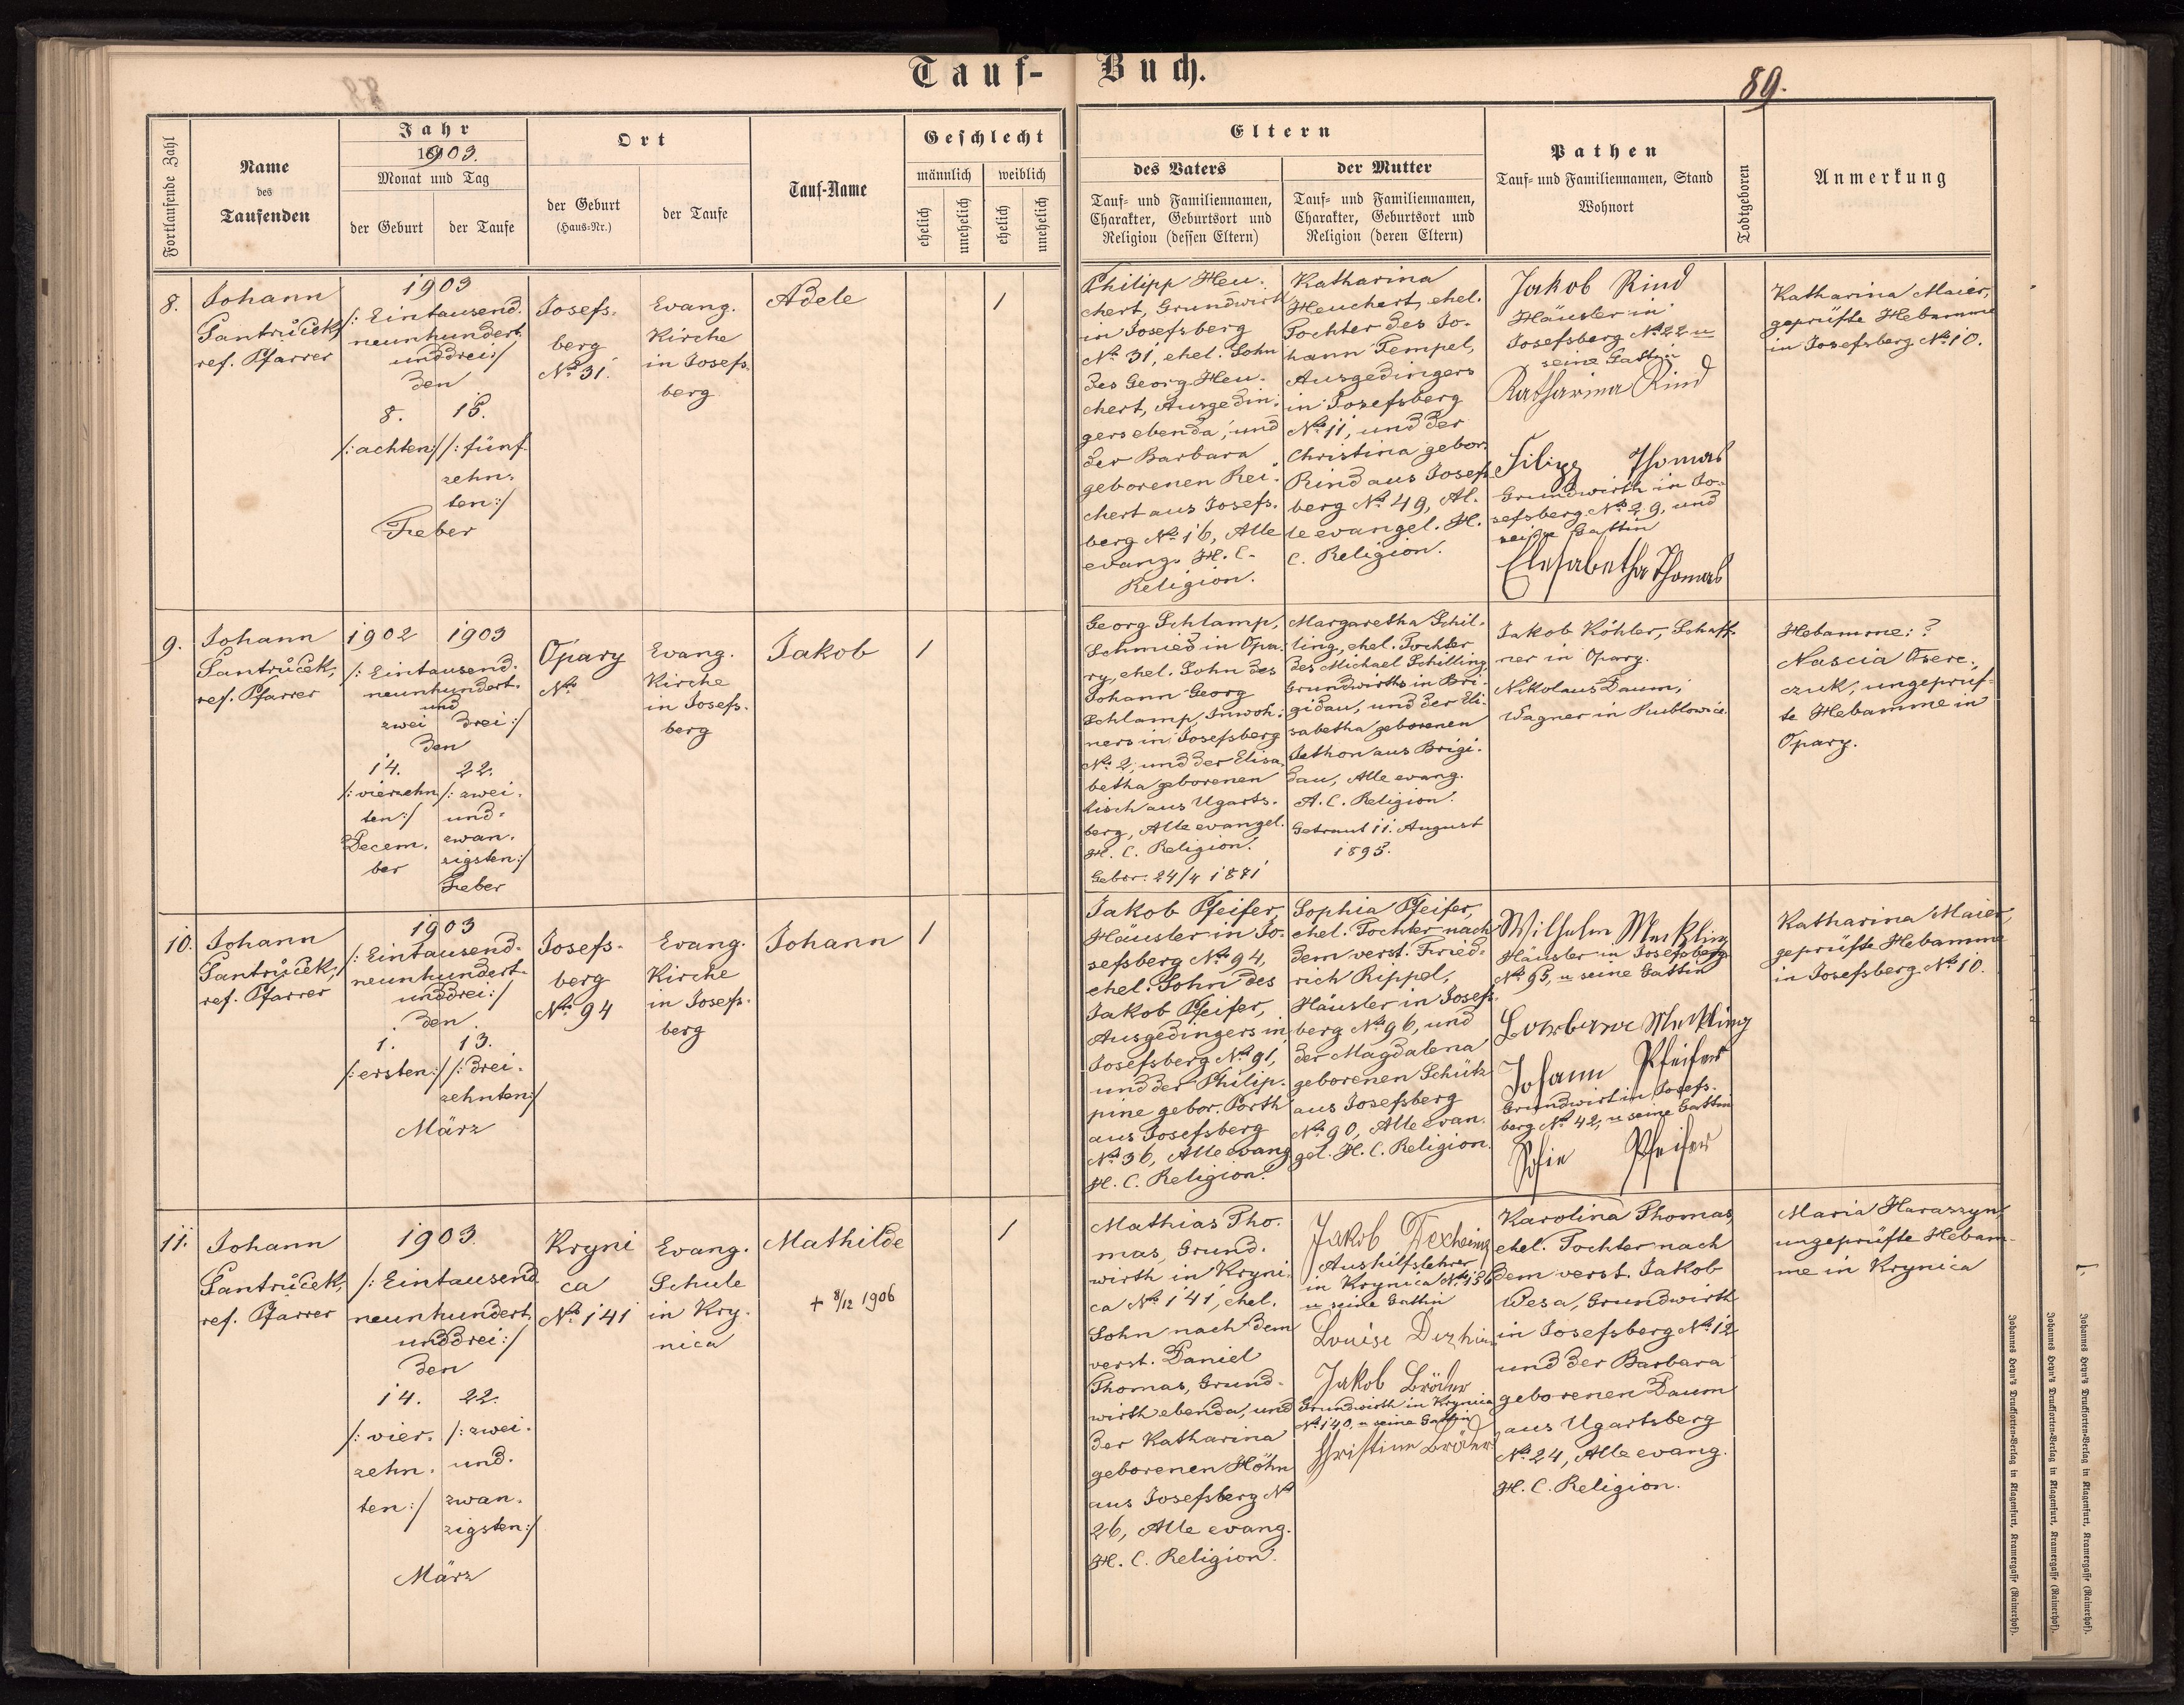 Tauf-
Buch.
89.
Fortlaufende Zahl
Name
des
Taufenden
Jahr
1903.
Monat und Tag
der Geburt
der Taufe
Ort
der Geburt
(Haus-Nr.)
der Taufe
Tauf-Name
Geschlecht
männlich
weiblich
ehelich
unehelich
ehelich
unehelich
Eltern
des Vaters
Tauf- und Familiennamen,
Charakter, Geburtsort und
Religion (dessen Eltern)
der Mutter
Tauf- und Familiennamen,
Charakter, Geburtsort und
Religion (deren Eltern)
Pathen
Tauf- und Familiennamen, Stand
Wohnort
Todtgeboren
Anmerkung
8.
Johann
Santrůček,
ref. Pfarrer
1903
/: Eintausend-
neunhundert-
unddrei:/
den
8.
/:achten:/
15.
/: fünf-
zehn-
ten:/
Feber
Josefs-
berg
No 31.
Evang.
Kirche
in Josefs-
berg
Adele
1
Philipp Heu-
chert, Grundwirt
in Josefsberg
No 31, ehel. Sohn
des Georg Heu-
chert, Ausgedin-
gers ebenda, und
der Barbara
geborenen Rei-
chert aus Josefs-
berg No 16, Alle
evang. H. C.
Religion.
Katharina
Heuchert, ehel.
Tochter des Jo-
hann Tempel,
Ausgedingers
in Josefsberg
No 11, und der
Christina gebor.
Rind aus Josefs-
berg No 49, Al-
le evangel. H.
C. Religion.
Jakob Rind
Häusler in
Josefsberg No 22 u
seine Gattin
Katharina Rind
Filipp Thomas
Grundwirth in Jo-
sefsberg No 29, und
seine Gattin
Elesabetha Thomas
Katharina Maier,
geprüfte Hebamme
in Josefsberg No 10.
9.
Johann
Santrůček,
ref. Pfarrer
1902
1903
/: Eintausend-
neunhundert-
und
zwei
drei:/
den
14.
/: vierzehn-
ten:/
Decem-
ber
22.
/: zwei-
und-
zwan-
zigsten:/
Feber
Opary
No
Evang.
Kirche
in Josefs-
berg
Jakob
1
Georg Schlamp,
Schmied in Opa-
ry, ehel. Sohn des
Johann Georg
Schlamp, Inwoh-
ners in Josefsberg
No 2, und der Elisa-
betha geborenen
Lisch aus Ugarts-
berg, Alle evangel.
H. C. Religion.
Gebor. 24/4 1871
Margaretha Schil-
ling, ehel. Tochter
des Michael Schilling,
Grundwirths in Bri-
gidau, und der Eli-
sabetha geborenen
Jethon aus Brigi-
dau, Alle evang.
A. C. Religion.
Getraut 11. August
1895.
Jakob Köhler, Schaff-
ner in Opary.
Nikolaus Daum,
Wagner in
Hebamme: ?
Nascia
czuk, ungeprüf-
te Hebamme in
Opary.
10.
Johann
Santrůček,
ref. Pfarrer
1903
/: Eintausend-
neunhundert-
unddrei:/
den
1.
/: ersten:/
13.
/: drei-
zehnten:/
März
Josefs-
berg
No 94
Evang.
Kirche
in Josefs-
berg
Johann
1
Jakob Pfeifer,
Häusler in Jo-
sefsberg No 94,
ehel. Sohn des
Jakob Pfeifer,
Ausgedingers in
Josefsberg No 91,
und der Philip-
pine gebor. Porth
aus Josefsberg
No 36, Alle evang.
H. C. Religion.
Sophia Pfeifer,
ehel. Tochter nach
dem verst. Fried-
rich Rippel,
Häusler in Josefs-
berg No 96, und
der Magdalena
geborenen Schütz
aus Josefsberg
No 90, Alle evan-
gel. H. C. Religion.
Wilhelm Meckling
Häusler in Josefsberg
No 65, u seine Gattin
Barbara Meckling
Johann Pfeifer
Grundwirt in Josefs-
berg No 42, u seine Gattin
Sofie Pfeifer
Katharina Maier,
geprüfte Hebamme
in Josefsberg No 10.
11.
Johann
Santrůček,
ref. Pfarrer
1903.
/: Eintausend
neunhundert
unddrei:/
den
14.
/: vier-
zehn-
ten:/
22.
/: zwei-
und-
zwan-
zigsten:/
März
Kryni
ca
No 141
Evang.
Schule
in Kry-
nica
Mathilde
+ 8/12 1906
1
Mathias Tho-
mas, Grund-
wirth in Kryni-
ca No 141, ehel.
Sohn nach dem
verst. Daniel
Thomas, Grund-
wirth ebenda, und
der Katharina
geborenen Höhn
aus Josefsberg No
26, Alle evang.
H. C. Religion.
Jakob Dexheimer
Aushilfslehrer
in Krynica No 136
u seine Gattin
Louise
Jakob Bröder
Grundwirth in Krynica
No 140, u seine Gattin
Christine Bröder
Karolina Thomas,
ehel. Tochter nach
dem verst. Jakob
Wesa, Grundwirth
in Josefsberg No 12
und der Barbara
geborenen Daum
aus Ugartsberg
No 24, Alle evang.
H. C. Religion.
Maria Haraszyn,
ungeprüfte Hebam-
me in Krynica
Johannes Heyn's Drucksorten-Verlag in Klagenfurt, Kramergasse (Rainerhof).
Johannes Heyn's Drucksorten-Verlag in Klagenfurt, Kramergasse (Rainerhof).
Johannes Heyn's Drucksorten-Verlag in Klagenfurt, Kramergasse (Rainerhof).